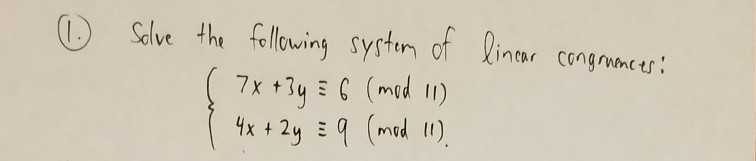 1. Solve the following system of linear congruences:
7x + 3y ≡ 6 (mod 11)
4x + 2y ≡ 9 (mod 11).